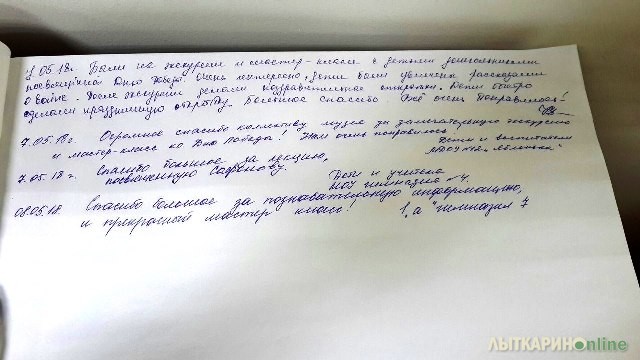 7.05.18г. Были на экскурсии и мастер-классе с детьми дошкольниками
посвящённой Дню Победы. Очень интересно, дети были увлечены рассказами
о войне. После экскурсии делали поздравительные открытки. Дети быстро
сделали праздничную открытку. Большое спасибо. Всё очень понравилось!
7.05.18г. Огромное спасибо коллективу музея за замечательную экскурсию
и мастер-класс ко Дню Победы! Нам очень понравилось
Дети и воспитатели
МДОУ "Яблонька"
7.05.18г. Спасибо большое за лекцию,
посвященную Сафонову.
Дети и учителя
МОУ гимназия №4.
08.05.18. Спасибо большое за познавательную информацию,
и прекрасный мастер класс! 1,а "гимназия 7
ЛЫТКАРИНОonline